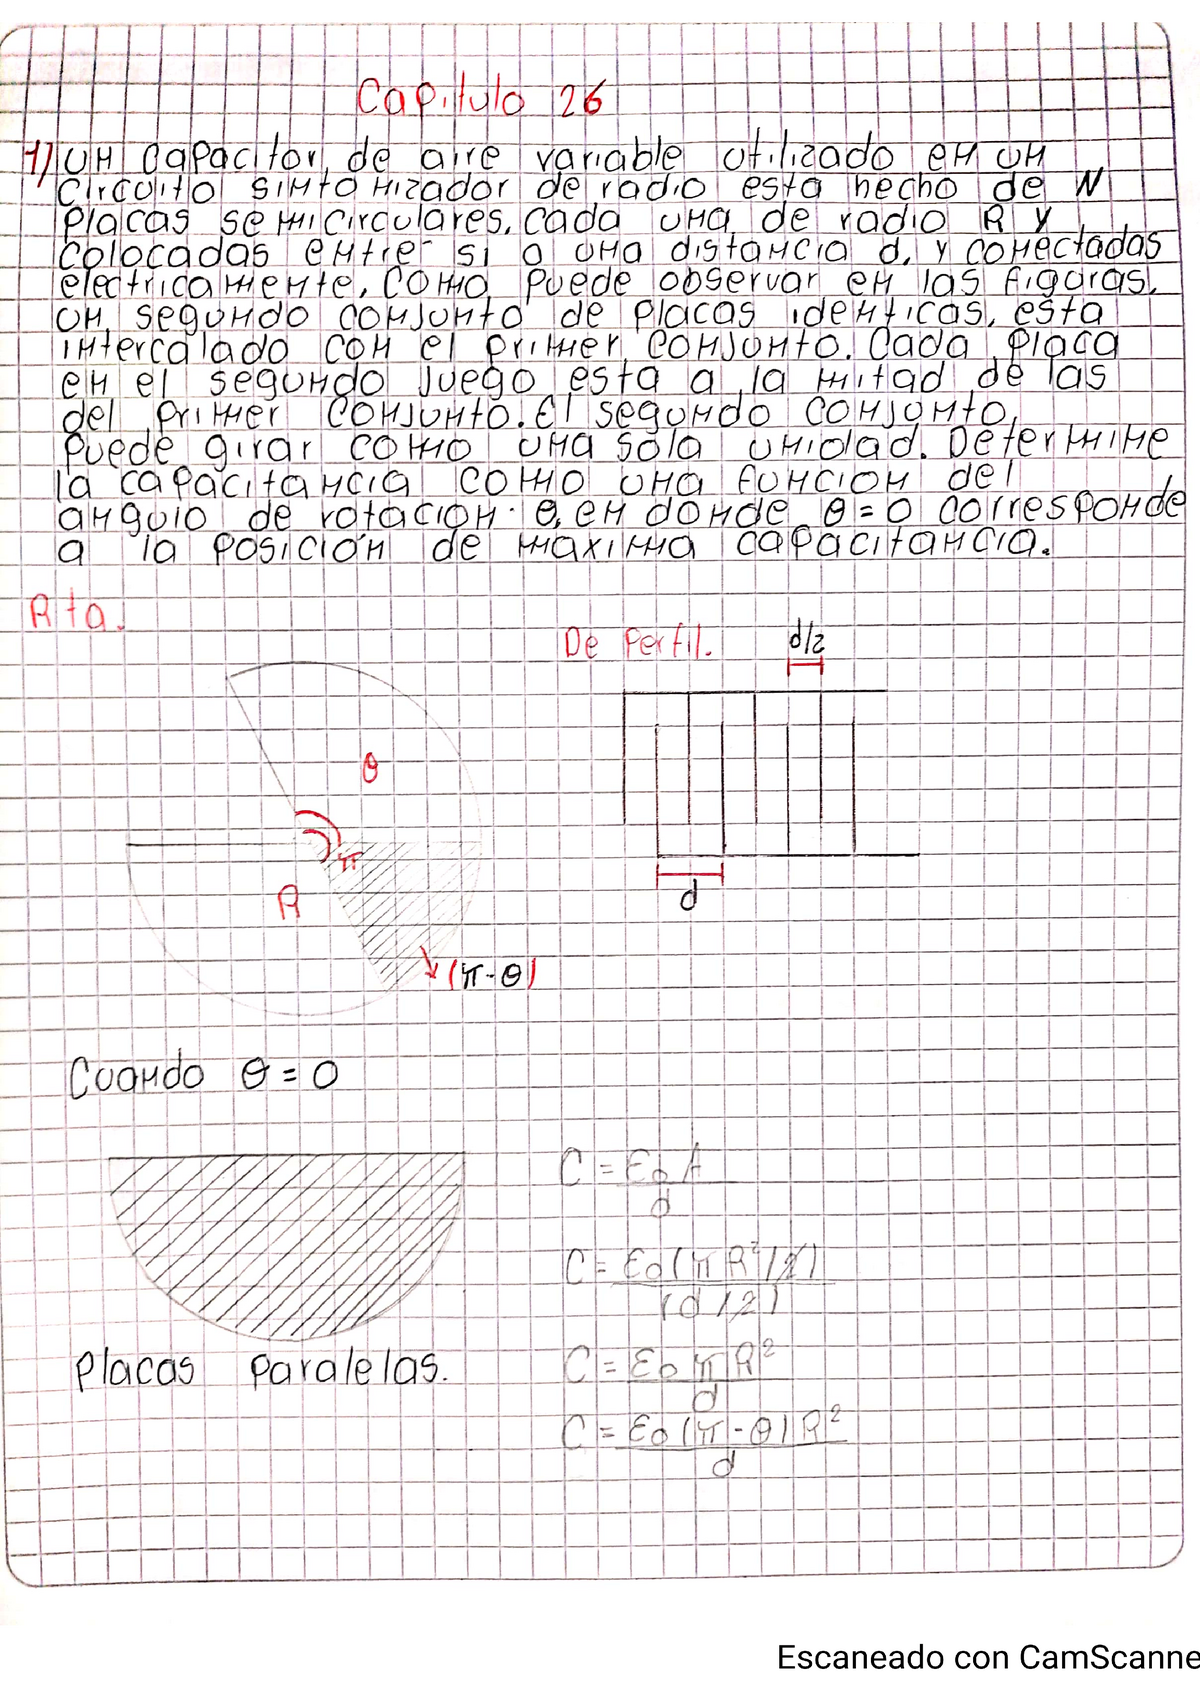 Capitulo 26
1) un capacitor de aire variable utilizado en un
circuito sintonizador de radio esta hecho de N
placas semicirculares, cada una de radio R y
colocadas entre si a una distancia d, y conectadas
electricamente. Como puede observar en las figuras,
un segundo conjunto de placas identicas, esta
intercalado con el primer conjunto. Cada placa
en el segundo juego esta a la mitad de las
del primer conjunto. El segundo conjunto,
puede girar como una sola unidad. Determine
la capacitancia como una funcion del
angulo de rotacion θ, en donde θ = 0 corresponde
a la posición de maxima capacitancia.
Rta.
De Perfil.
d/2
θ
π
R
d
(π-θ)
Cuando θ = 0
C = ε0 A
d
C = ε0 (π R²/2)
(d/2)
C = ε0 π R²
d
Placas Paralelas.
C = ε0 (π-θ) R²
d
Escaneado con CamScanne